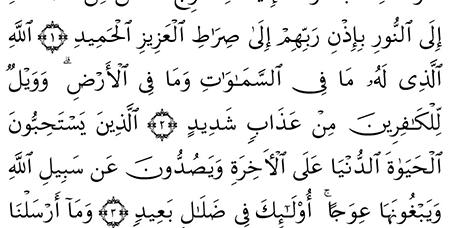 إِلَى النُّورِ بِإِذْنِ رَبِّهِمْ إِلَىٰ صِرَاطِ الْعَزِيزِ الْحَمِيدِ ﴿١﴾ اللَّهِ
الَّذِى لَهُۥ مَا فِى السَّمَـٰوَٰتِ وَمَا فِى الْأَرْضِ ۗ وَوَيْلٌ
لِّلْكَـٰفِرِينَ مِنْ عَذَابٍ شَدِيدٍ ﴿٢﴾ الَّذِينَ يَسْتَحِبُّونَ
الْحَيَوٰةَ الدُّنْيَا عَلَى الْأَخِرَةِ وَيَصُدُّونَ عَن سَبِيلِ اللَّهِ
وَيَبْغُونَهَا عِوَجًا ۚ أُو۟لَـٰٓئِكَ فِى ضَلَـٰلٍ بَعِيدٍ ﴿٣﴾ وَمَآ أَرْسَلْنَا